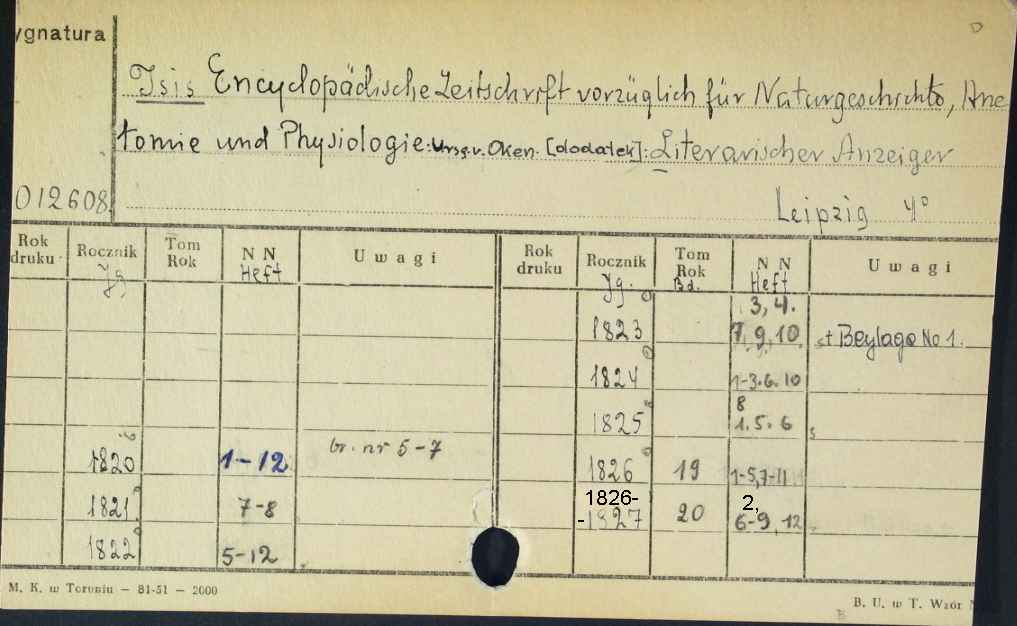 ygnatura
Isis Encyclopädische Zeitschrift vorzüglich für Naturgeschichte, Ana
tomie und Physiologie: Hrsg. v. Oken. [dodatek]: Literarischer Anzeiger
012608
Leipzig 4°
Rok druku Rocznik Jg. Tom Rok N N Heft Uwagi Rok druku Rocznik Jg. Tom Rok Bd. N N Heft Uwagi
3, 4.
1823 7, 9, 10 + Beylage No 1.
1824 1-3. 6. 10
8
1825 1. 5. 6
1820 1-12 br. nr 5-7 1826 19 1-5, 7-11
1826- 2,
1821 7-8 -1827 20 6-9, 12
1822 5-12
M. K. w Toruniu — 81-51 — 2000
B. U. w T. Wzór